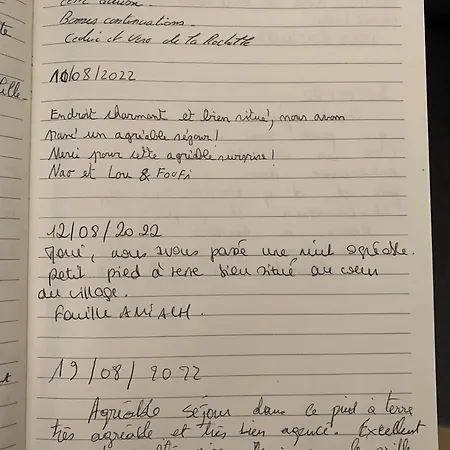 Bonnes continuations.
Cedric et Vero de La Rochelle
10/08/2022
Endroit charmant et bien situé, nous avom
passé un agréable séjour!
Merci pour cette agréable surprise!
Nao et Lou & Foufi
12/08/2022
nous avons passé une nuit agréable.
petit pied à terre bien situé au coeur
du village.
Famille
19/08/2022
Agréable séjour dans ce pied à terre
très agréable et très bien agencé. Excellent